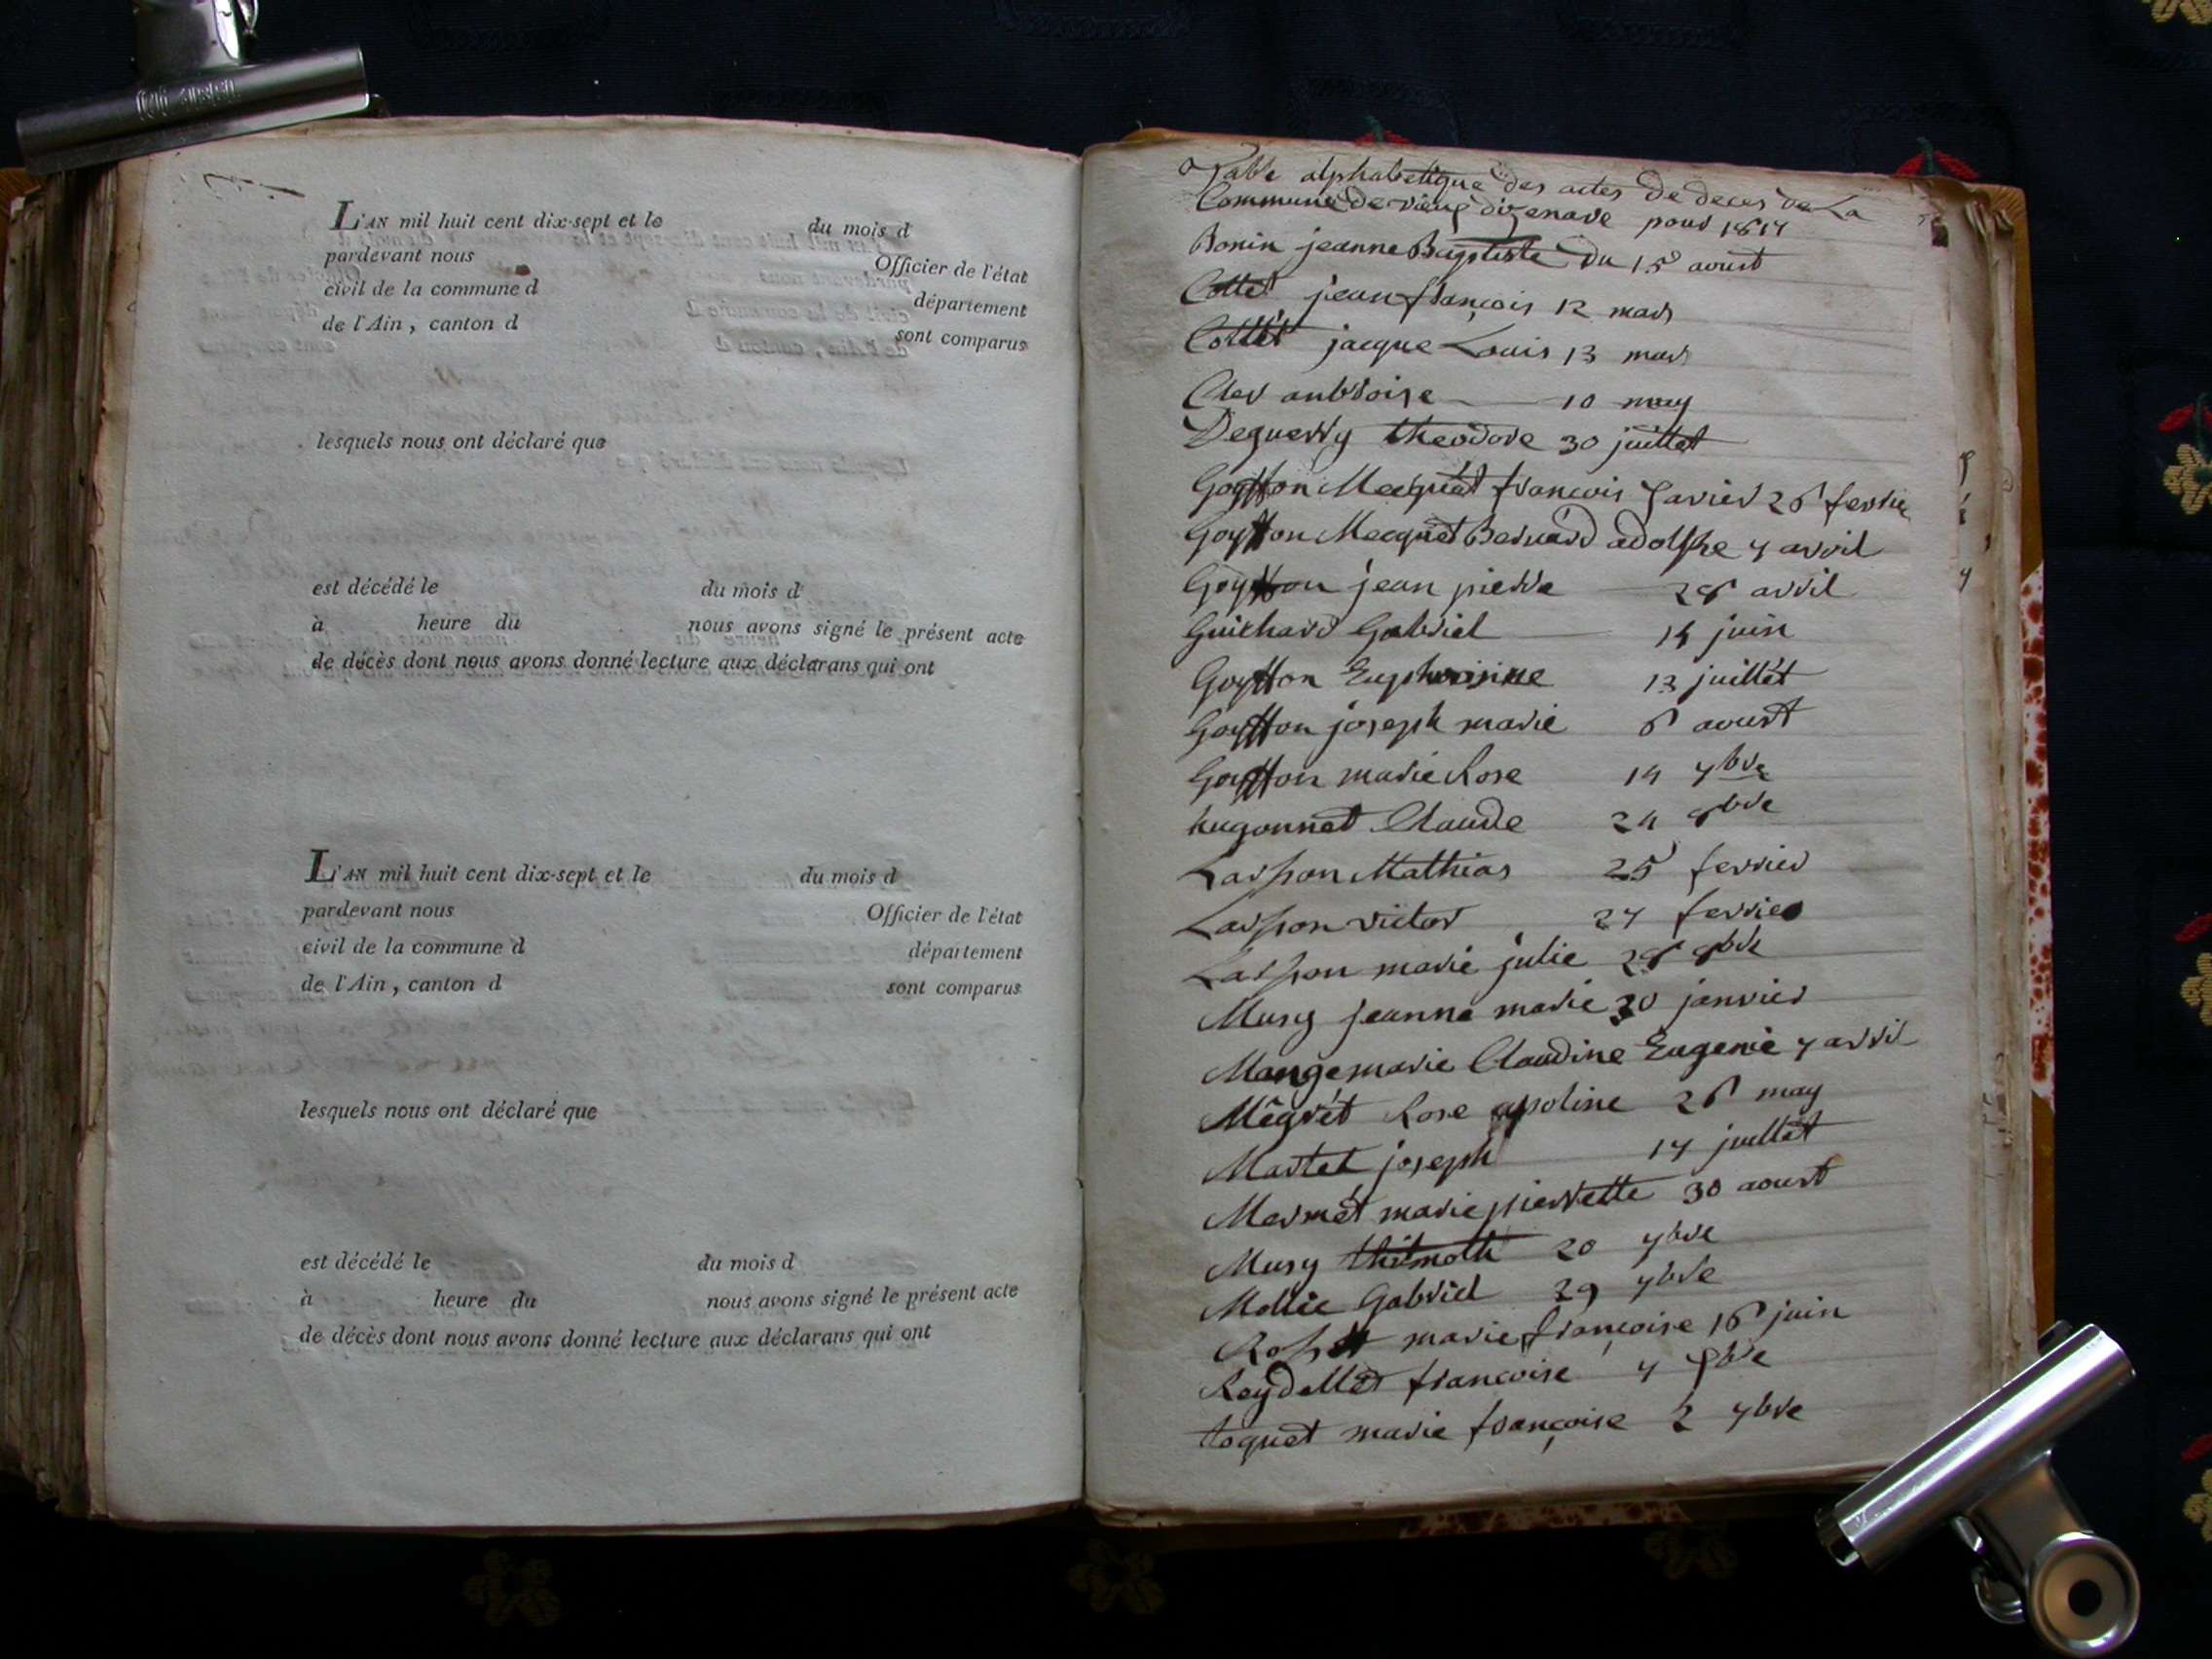 L'AN mil huit cent dix-sept et le du mois d
pardevant nous Officier de l'état
civil de la commune d département
de l'Ain, canton d sont comparus
lesquels nous ont déclaré que
est décédé le du mois d
à heure du nous avons signé le présent acte
de décès dont nous avons donné lecture aux déclarans qui ont
L'AN mil huit cent dix-sept et le du mois d
pardevant nous Officier de l'état
civil de la commune d département
de l'Ain, canton d sont comparus
lesquels nous ont déclaré que
est décédé le du mois d
à heure du nous avons signé le présent acte
de décès dont nous avons donné lecture aux déclarans qui ont
Table alphabetique des actes de deces de La
Commune de vieux dizenave pour 1817
Bonin jeanne Baptiste du 15 aoust
Collet jean françois 12 mars
Collet jacque Louis 13 mars
Cler anbroise 10 may
Deguerry theodore 30 juillet
Goyffon Mecquet francois Xavier 26 fevrie
Goyffon Mecquet Bernard adolphe 7 avril
Goyffon jean pierre 28 avril
Guichard Gabriel 14 juin
Goyffon Euphrosine 13 juillet
Goyffon joseph marie 6 aoust
Goyffon marie Rose 14 7bre
hugonnet Claude 24 8bre
Larpon Mathias 25 fevrier
Larpon victor 27 fevrier
Larpon marie julie 28 8bre
Musy jeanne marie 30 janvier
Mange marie Claudine Eugenie 7 avril
Mêgret Rose apoline 26 may
Martel joseph 17 juillet
Mermet marie pierrette 30 aoust
Musy 20 7bre
Mollie Gabriel 29 7bre
marie françoise 16 juin
Reydellet francoise 7 8bre
toquet marie françoise 2 7bre